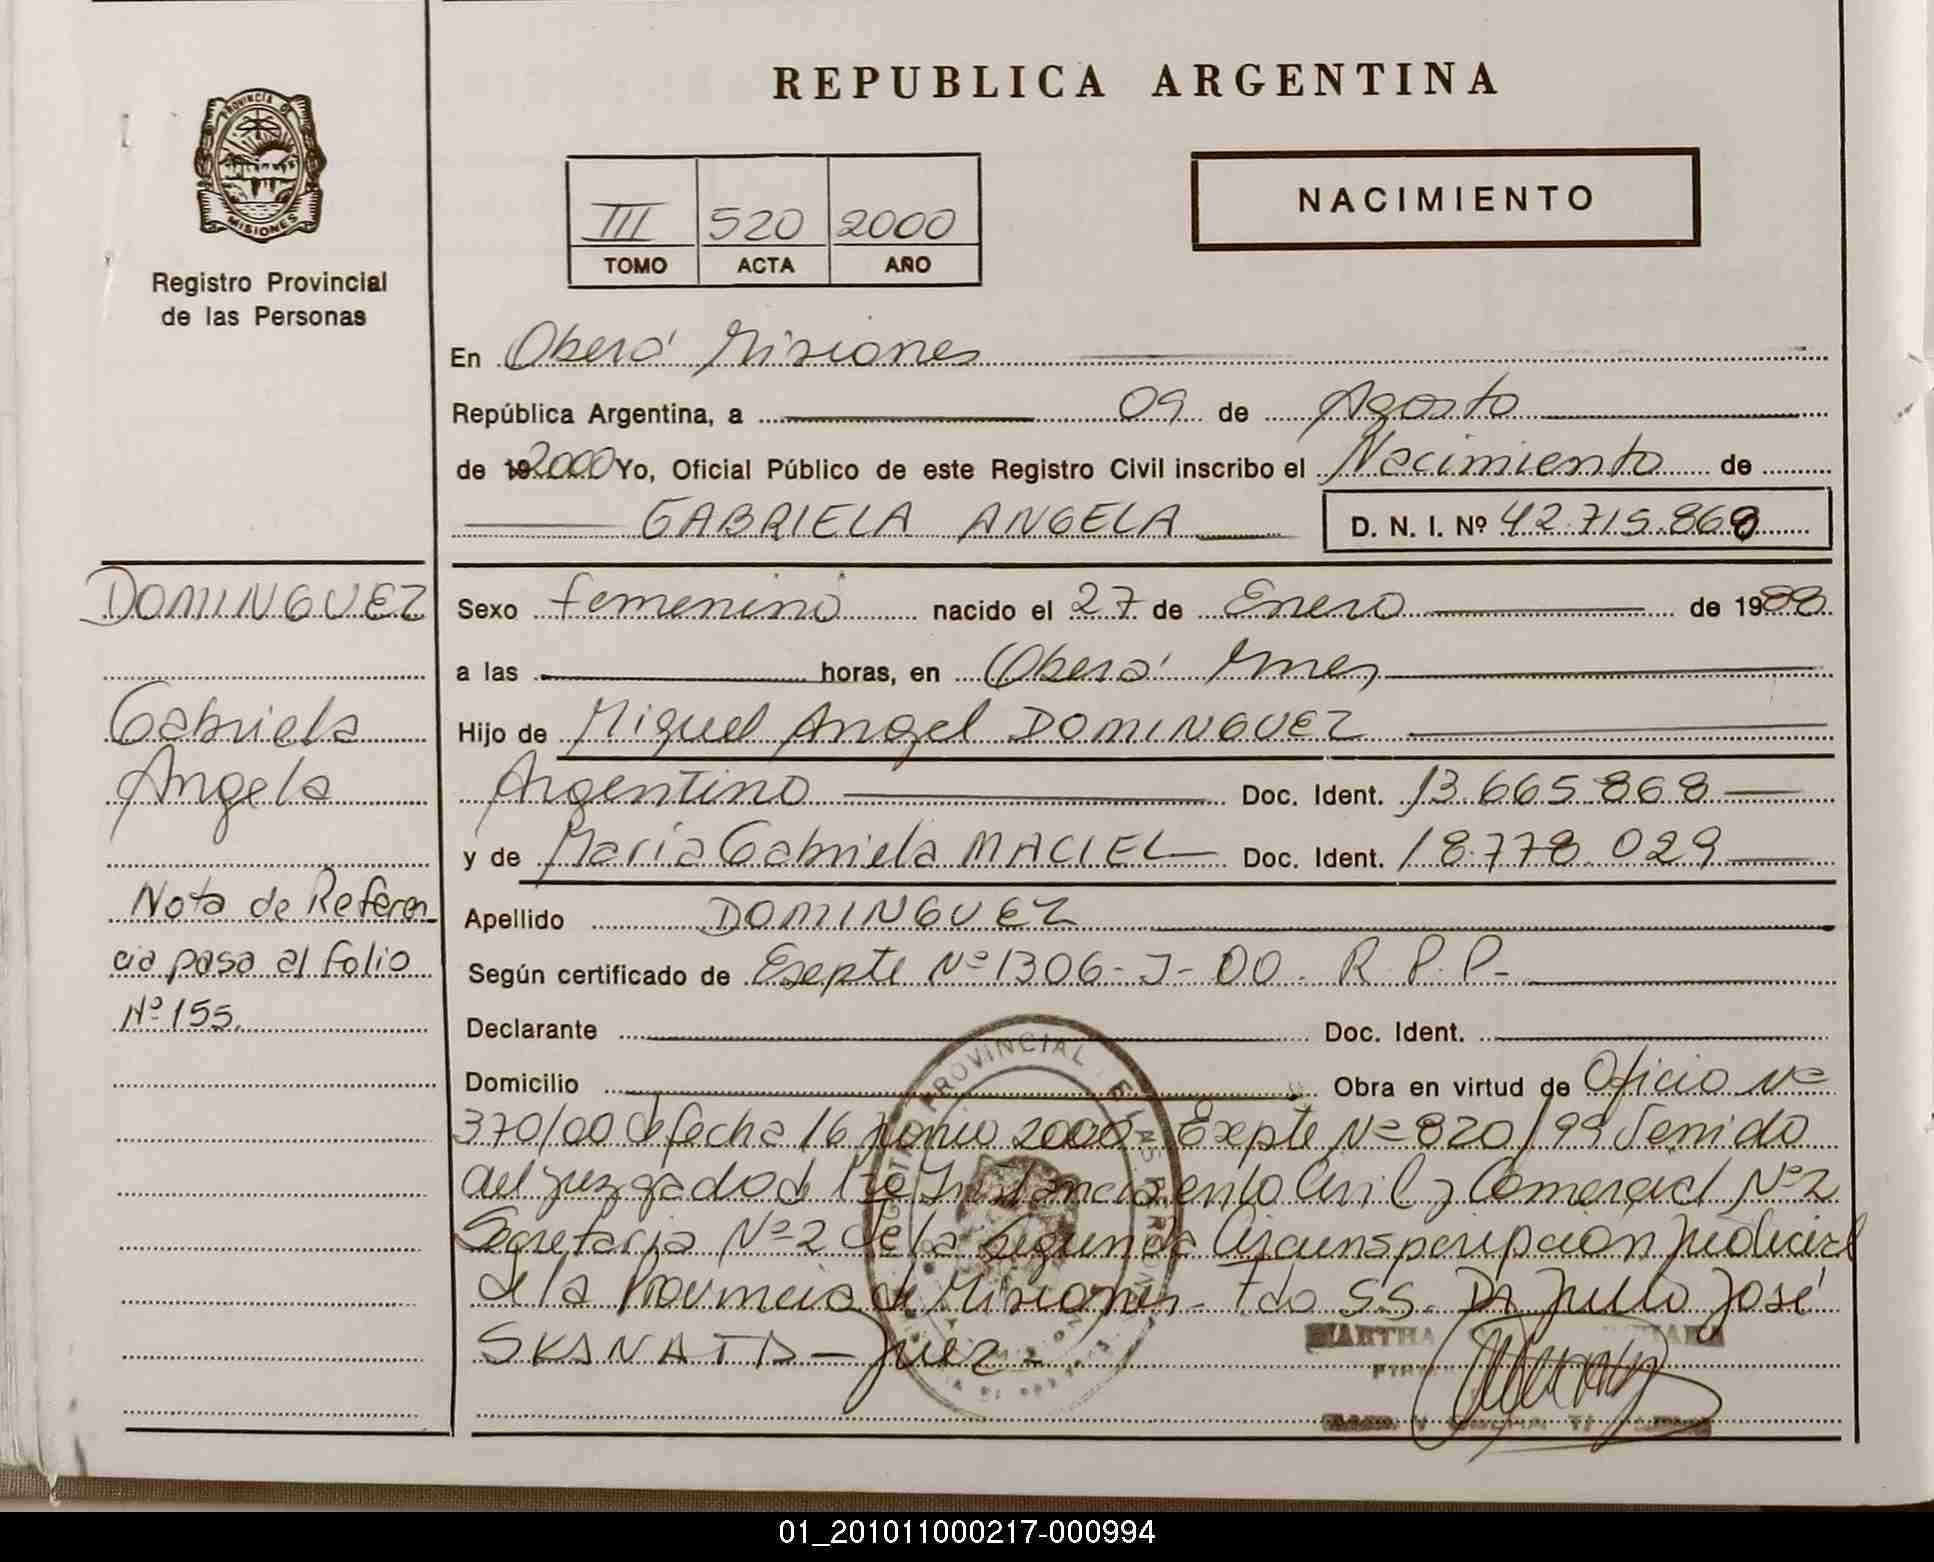 REPUBLICA ARGENTINA
PROVINCIA DE
MISIONES
Registro Provincial
de las Personas
NACIMIENTO
III 520 2000
TOMO ACTA AÑO
En Oberá Misiones
República Argentina, a 09 de Agosto
de 19 2000 Yo, Oficial Público de este Registro Civil inscribo el Nacimiento de
GABRIELA ANGELA D. N. I. Nº 42.715.868
DOMINGUEZ
Gabriela
Angela
Nota de Referen
cia pasa al folio
Nº 155.
Sexo femenino nacido el 27 de Enero de 1988
a las horas, en Oberá Mnes
Hijo de Miguel Angel DOMINGUEZ
Argentino Doc. Ident. 13.665.868
y de Maria Gabriela MACIEL Doc. Ident. 18.778.029
Apellido DOMINGUEZ
Según certificado de Expte Nº 1306-J-00. R.P.P.
Declarante Doc. Ident.
Domicilio Obra en virtud de Oficio Nº
370/00 de fecha 16 Junio 2000 Expte Nº 820/99 Venido
del juzgado de 1ra Instancia en lo Civil y Comercial Nº 2
Secretaria Nº 2 de la Segunda Circunspcripcion Judicial
de la Provincia de Misiones. Fdo S.S. Dr Julio José
SKANATA - Juez
PROVINCIAL DE LAS
MARTHA
01_201011000217-000994